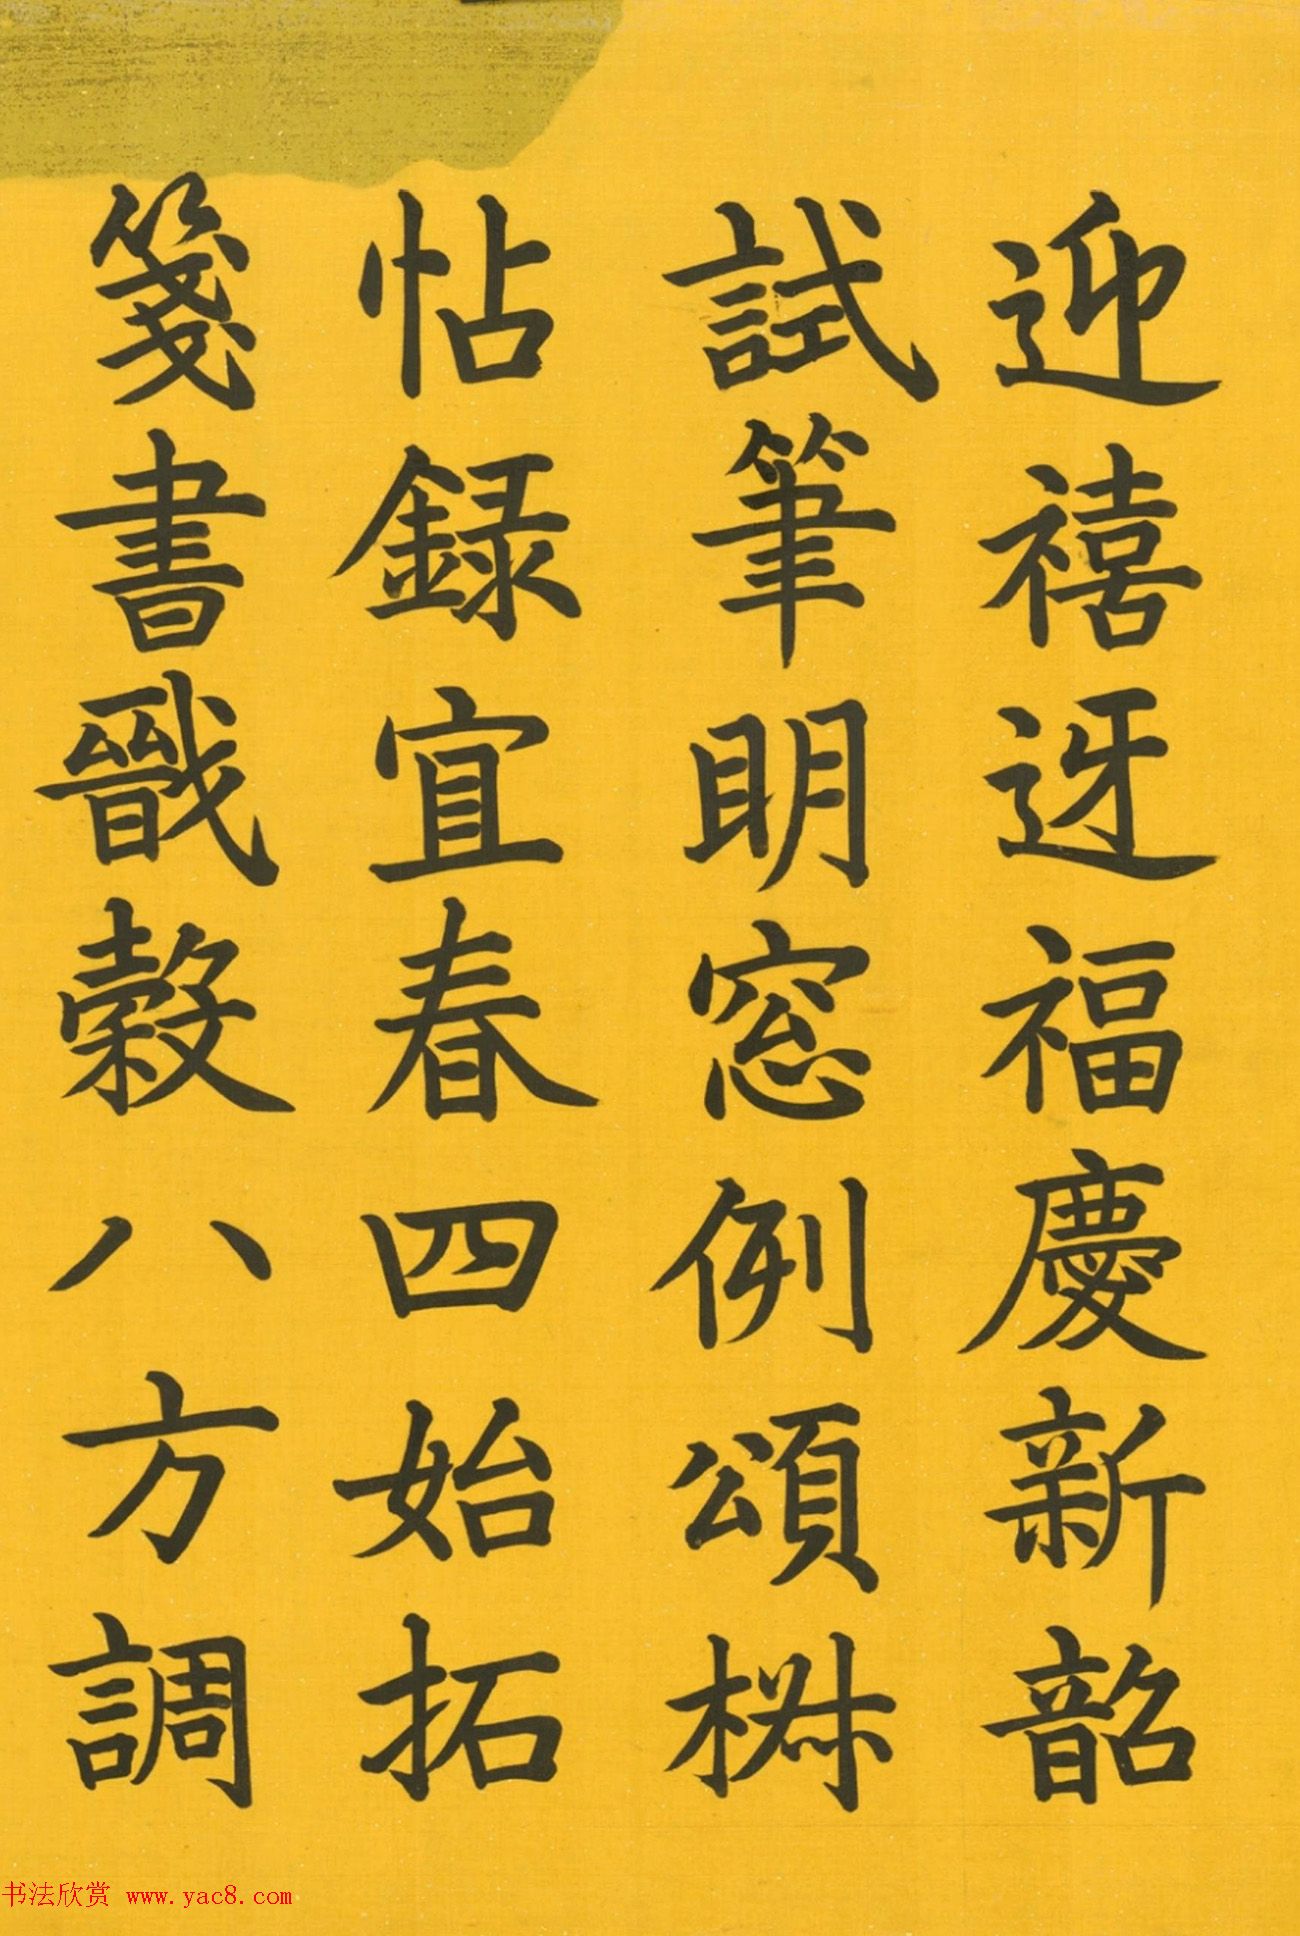 迎禧迓福慶新韶
試筆明窓例頌椒
帖録宜春四始拓
箋書戬穀八方調
书法欣赏 www.yac8.com